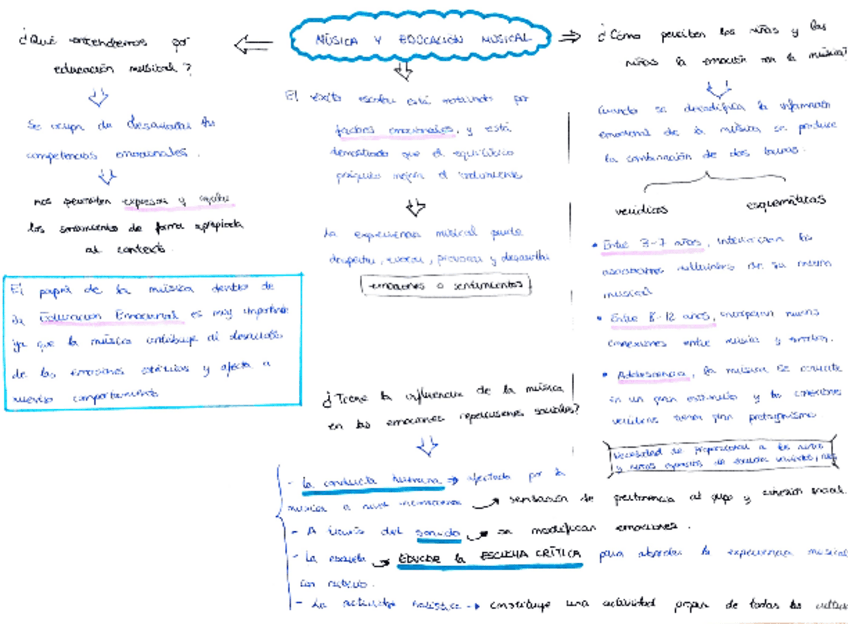 MÚSICA Y EDUCACIÓN MUSICAL
¿Qué entendemos por
educación musical?
Se ocupa de desarrollar las
competencias emocionales.
nos permiten expresar y
los sentimientos de forma apropiada
al contexto.
El papel de la música dentro de
la Educación Emocional es muy importante
ya que la música contribuye al desarrollo
de las emociones estéticas y afecta a
nuestro comportamiento
El éxito escolar está motivado por
factores emocionales, y está
demostrado que el equilibrio
psíquico mejora el rendimiento
La experiencia musical puede
despertar, evocar, provocar y desarrollar
emociones o sentimientos
¿Cómo perciben los niños y las
niñas la emoción en la música?
Cuando se decodifica la información
emocional de la música se produce
la combinación de dos
verídicas esquemáticas
• Entre 3-7 años, interiorizan las
asociaciones culturales de su
musical
• Entre 8-12 años, incorporan nuevas
conexiones entre música y
• Adolescencia, la música se convierte
en un gran estímulo y las conexiones
verídicas tienen gran protagonismo
Necesidad de proporcionar a los niños
y niñas ejemplos de
¿Tiene la influencia de la música
en las emociones repercusiones sociales?
- La conducta humana → afectada por la
música a nivel → sensación de pertenencia al grupo y cohesión social
- A través del sonido → se modifican emociones.
- La escuela → EDUCAR la ESCUCHA CRÍTICA para abordar la experiencia musical
con
- La actividad → constituye una actividad propia de todas las